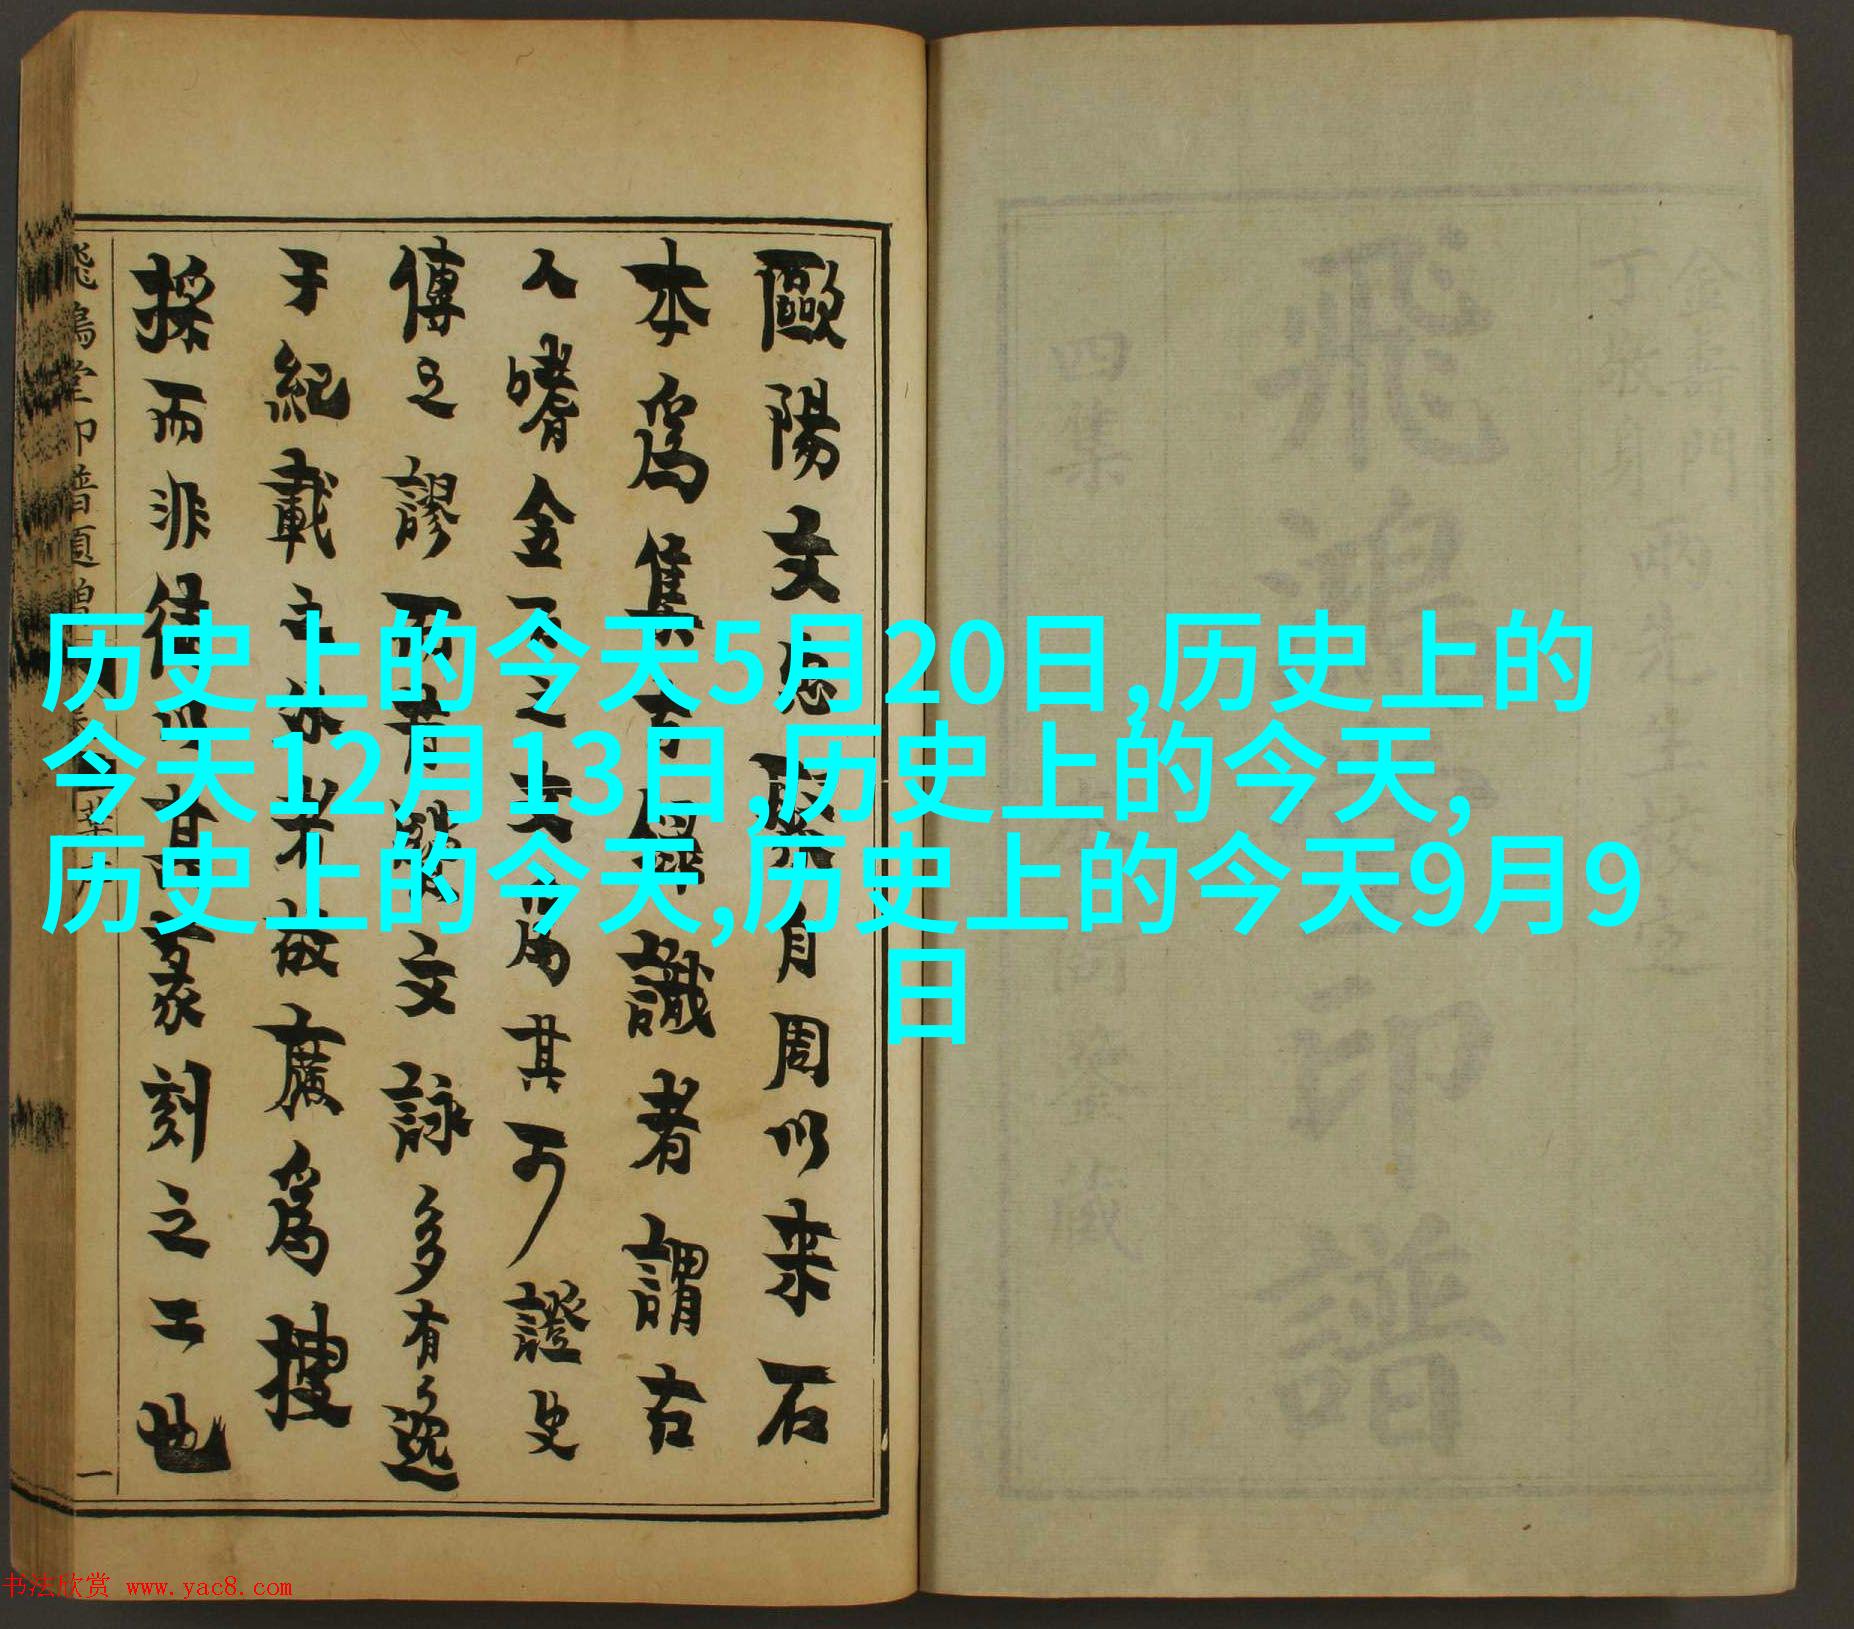 历史上的今天5月20日,历史上的
今天12月13日,历史上的今天,
历史上的今天,历史上的今天9月9
日
金壽門
丁敬身
兩先生校定
飛鴻堂印譜
四集
歐陽文忠
自周以来石
本爲集古錄識者謂古
人嗜金石之文爲其可證史
傳之謬
文詠多有逸
于紀載之外者故廣爲搜
採而非徒以書篆刻之工也
一
书法欣赏 www.yac8.com